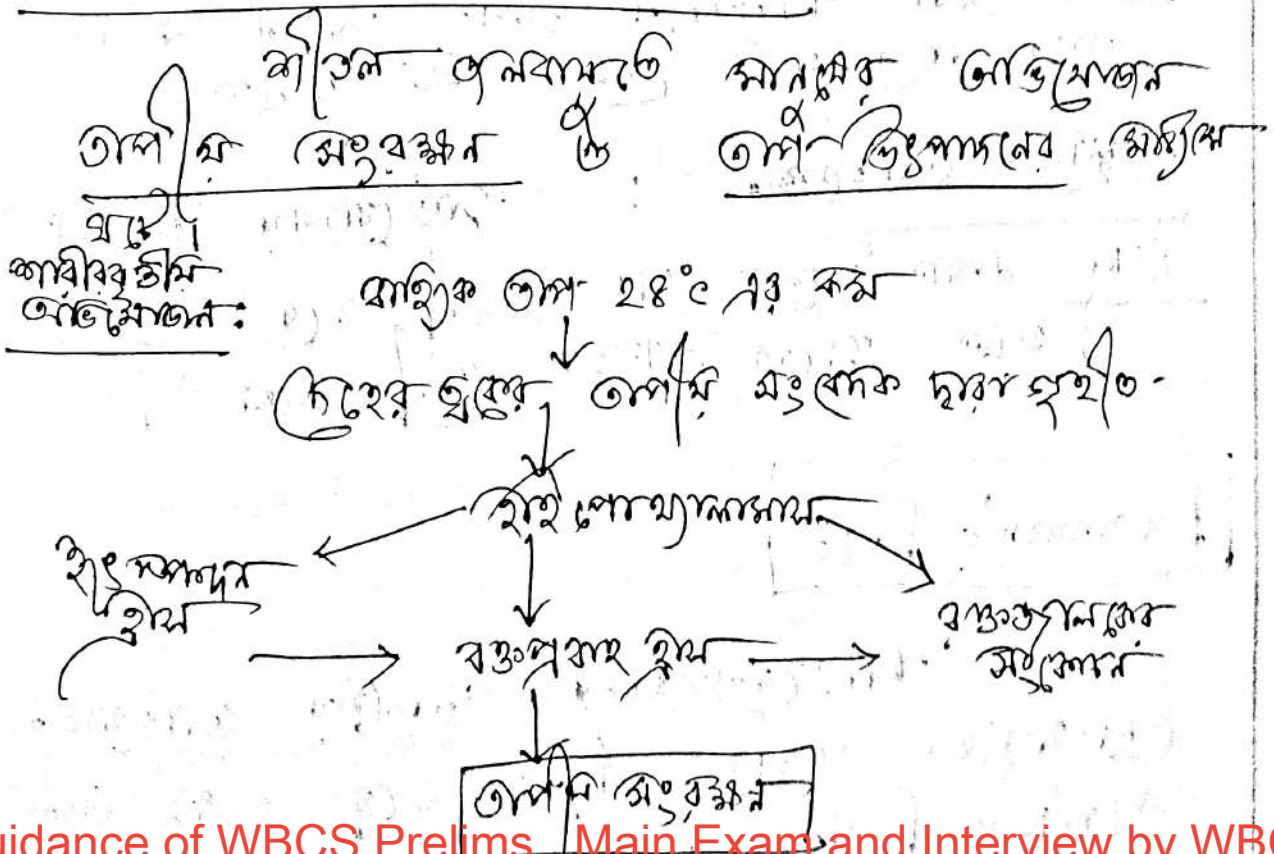 শীতল জলবায়ুতে মানুষের অভিযোজন
তাপীয় সংরক্ষন ও তাপ উৎপাদনের মাধ্যমে
ঘটে।
শারীরবৃত্তীয়
অভিযোজন:
বাহ্যিক তাপ ২৪°c এর কম
দেহের ত্বকের তাপীয় সংবেদক দ্বারা গৃহীত
হাইপোথ্যালামাস
হৃৎস্পন্দন
হ্রাস
রক্তপ্রবাহ হ্রাস
রক্তজালকের
সংকোচন
তাপীয় সংরক্ষন
uidance of WBCS Prelims, Main Exam and Interview by WBC